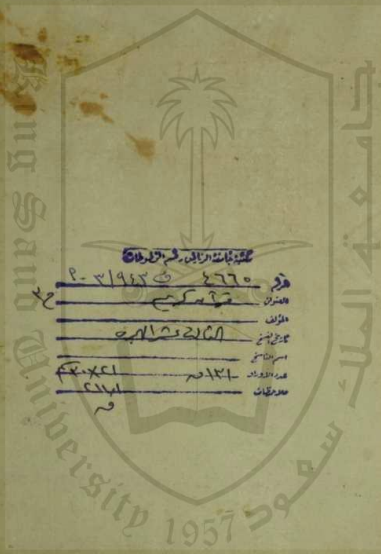 مكتبة جامعة الرياض - قسم المخطوطات
رقم ٤٦٦٥ ف ٩٤٣/٣
العنوان قرآن كريم ج٣
المؤلف
تاريخ النسخ الثالث عشر الهجري
اسم الناسخ
عدد الأوراق ١٣١ ق ٣٠×٢١
ملاحظات
King Saud University
1957
جامعة الملك سعود